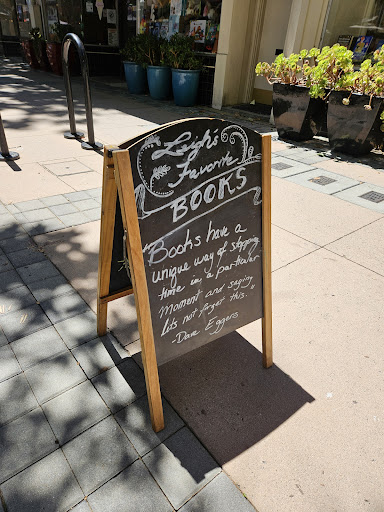 Leigh's
Favorite
BOOKS
"Books have a
unique way of stopping
time in a particular
moment and saying
Lets not forget this."
-Dave Eggers